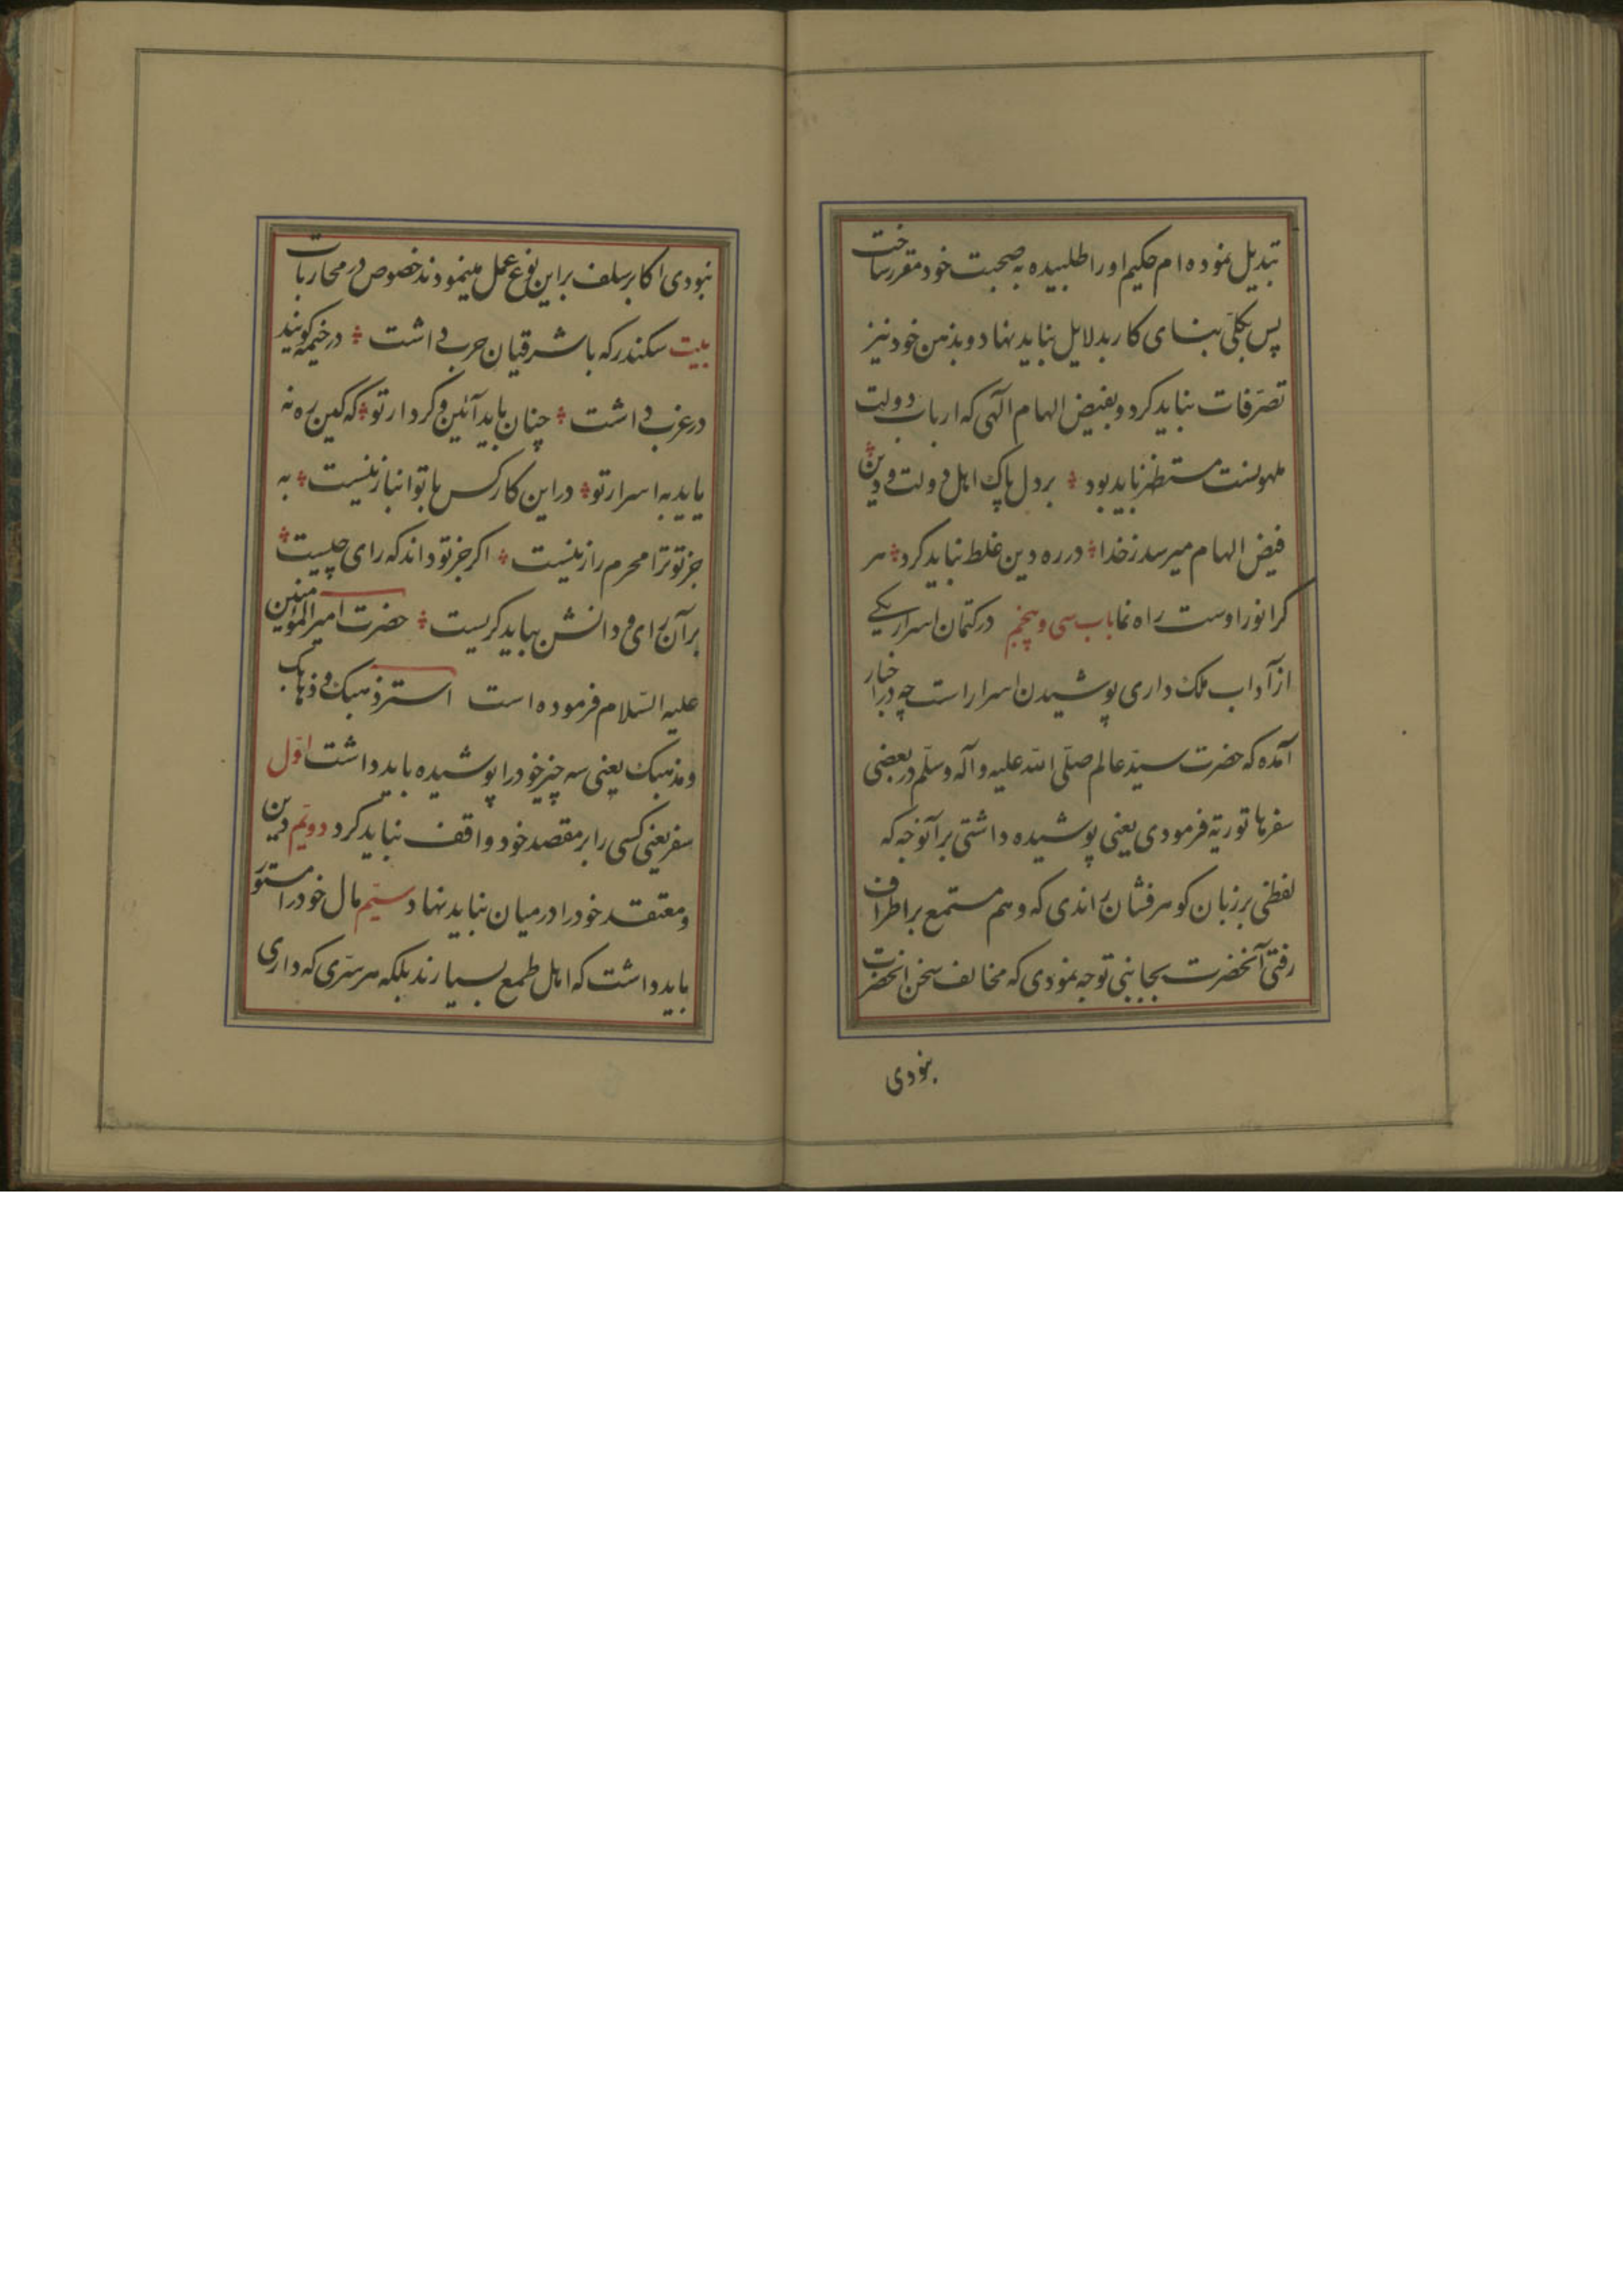 تبدیل نموده ام حکیم اورا طلبیده به صحبت خود مقرر ساخت
پس بکلّی بنای کار بدلایل نباید نهاد و بذهن خود نیز
تصرّفات نباید کرد و بفیض الهام الٓهی که ارباب دولت
ملهمست مستظهر باید بود ؞ بر دل پاک اهل دولت و دین ؞
فیض الهام میرسد ز خدا ؞ در ره دین غلط نباید کرد ؞ هر
کرا نور اوست راه نما باب سی و پنجم در کتمان اسرار یکے
از آداب ملک داری پوشیدن اسرار است چه در اخبار
آمده که حضرت سیّد عالم صلّی الله علیه و آله و سلّم در بعضی
سفرها توریّه فرمودی یعنی پوشیده داشتی بر آنوجه که
لفظی بر زبان کوهر فشان راندی که وهم مستمع بر اطراف
رفتی آنحضرت بجانبی توجه نمودی که مخالف سخن انحضرت
بنودی
نبودی اکابر سلف بر این نوع عمل مینمودند خصوص در محاربات
بیت سکندر که با شرقیان حرب داشت ؞ در خیمه کویند
در غرب داشت ؞ چنان باید آئین و کردار تو ؞ که کین ره نه
یابد به اسرار تو ؞ در این کار کس با تو انباز نیست ؞ به
جز تو ترا محرم راز نیست ؞ اکر جز تو داند که رای چیست ؞
بر آن رای و دانش بباید کریست ؞ حضرت امیر المؤمنین
علیه السّلام فرموده است استر ذهبک و ذهابک
و مذهبک یعنی سه چیز خود را پوشیده باید داشت اوّل
سفر یعنی کسی را بر مقصد خود واقف نباید کرد دویّم دین
و معتقد خود را در میان نباید نهاد سیّم مال خود را مستور
باید داشت که اهل طمع بسیارند بلکه هر سرّی که داری